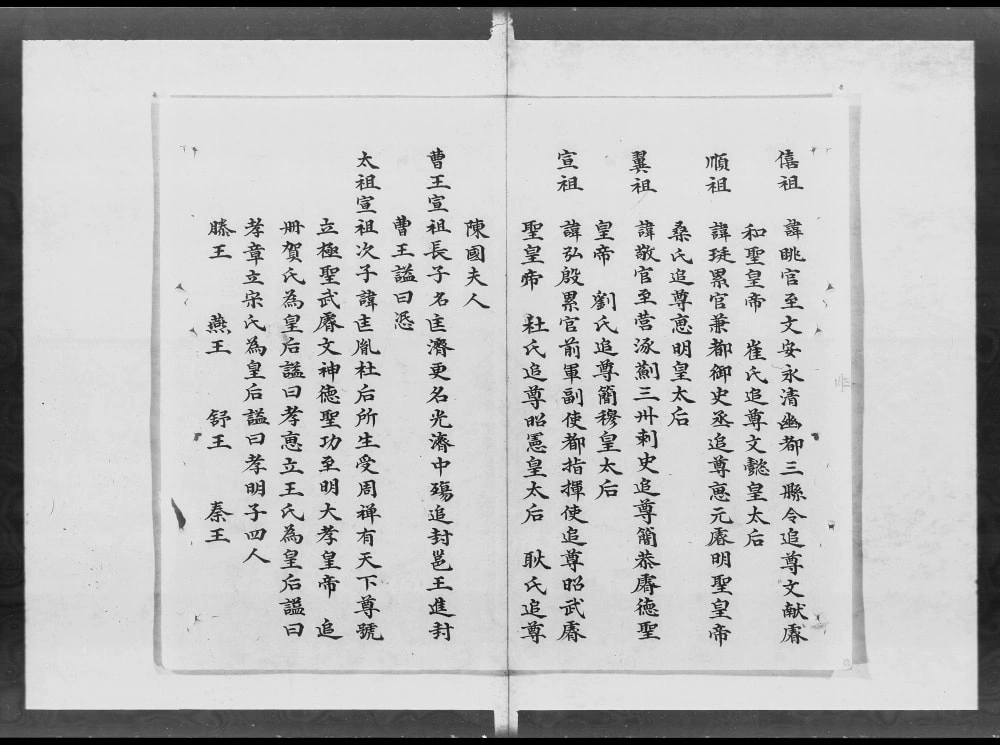 僖祖 諱眺官至文安永清幽都三縣令追尊文献睿
和聖皇帝 崔氏追尊文懿皇太后
順祖 諱珽累官兼都御史丞追尊恵元睿明聖皇帝
桑氏追尊恵明皇太后
翼祖 諱敬官至营涿薊三卅刺史追尊簡恭睿德聖
皇帝 劉氏追尊簡穆皇太后
宣祖 諱弘殷累官前軍副使都指揮使追尊昭武睿
聖皇帝 杜氏追尊昭憲皇太后 耿氏追尊
陳國夫人
曹王宣祖長子名匡濟更名光濟中殤追封邕王進封
曹王謚曰𢙢
太祖宣祖次子諱匡胤杜后所生受周禅有天下尊號
立極聖武睿文神徳聖功至明大孝皇帝 追
冊賀氏為皇后謚曰孝恵立王氏為皇后謚曰
孝章立宋氏為皇后謚曰孝明子四人
滕王 燕王 舒王 秦王